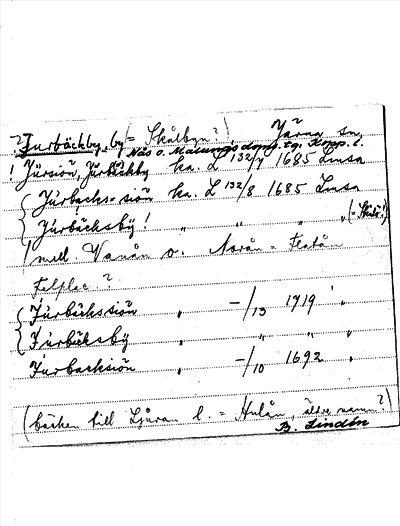 ? Jurbäckby, by (= Skålbyn?) Järna sn,
Näs o. Malungs doms. tg. Kopp. l.
! Jürsiön, Jürbäckby ka. L 132/7 1685 Lmsa
{ Jürbachs-siön ka. L 132/8 1685 Lmsa
{ Jürbäcksbÿ! " " " " (= Skålb!)
(med Vanån o. Noran = Flatån
Felplac.?
{ Jürbäckssiön " –/13 1719 "
{ Jürbäcksbÿ " " " "
Jürbacksiön " –/10 1692 "
(bäcken till Ljuran l. = Hulån, äldre namn?)
B. Lindén